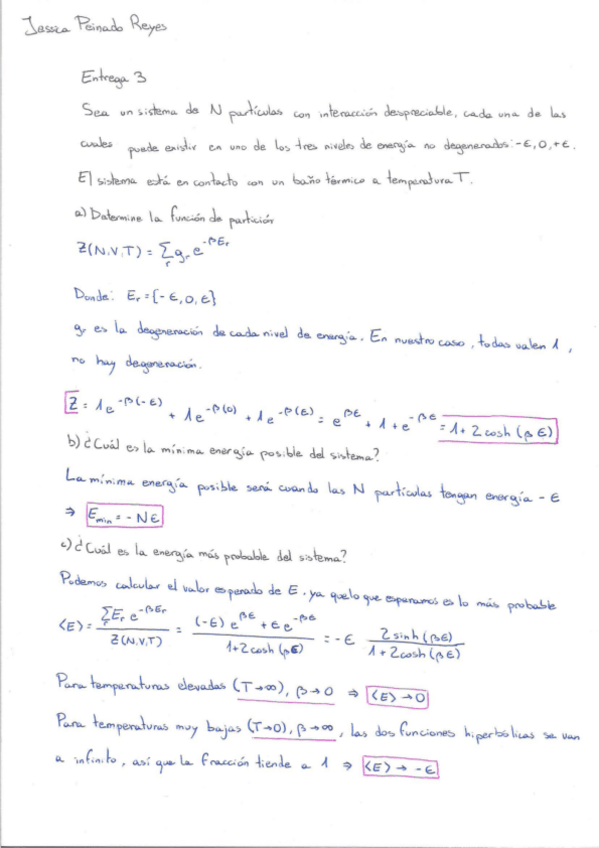 Jessza Peinado Reyes
Entrega 3
Sea un sistema de N partículas con interacción despreciable, cada una de las
cuales puede existir en uno de los tres niveles de energía no degenerados: -ε, 0, +ε.
El sistema está en contacto con un baño térmico a temperatura T.
a) Determine la función de partición
Z(N,V,T) = Σ_r g_r e^{-βE_r}
Donde: E_r = {-ε, 0, ε}
g_r es la degeneración de cada nivel de energía. En nuestro caso, todas valen 1,
no hay degeneración.
Z = 1e^{-β(-ε)} + 1e^{-β(0)} + 1e^{-β(ε)} = e^{βε} + 1 + e^{-βε} = 1 + 2cosh(βε)
b) ¿Cuál es la mínima energía posible del sistema?
La mínima energía posible será cuando las N partículas tengan energía -ε
⇒ E_{min} = -Nε
c) ¿Cuál es la energía más probable del sistema?
Podemos calcular el valor esperado de E, ya que lo que esperamos es lo más probable
⟨E⟩ = Σ_r E_r e^{-βE_r} / Z(N,V,T) = (-ε)e^{βε} + εe^{-βε} / 1+2cosh(βε) = -ε 2sinh(βε) / 1+2cosh(βε)
Para temperaturas elevadas (T→∞), β→0 ⇒ ⟨E⟩→0
Para temperaturas muy bajas (T→0), β→∞, las dos funciones hiperbólicas se van
a infinito, así que la fracción tiende a 1 ⇒ ⟨E⟩→ -ε